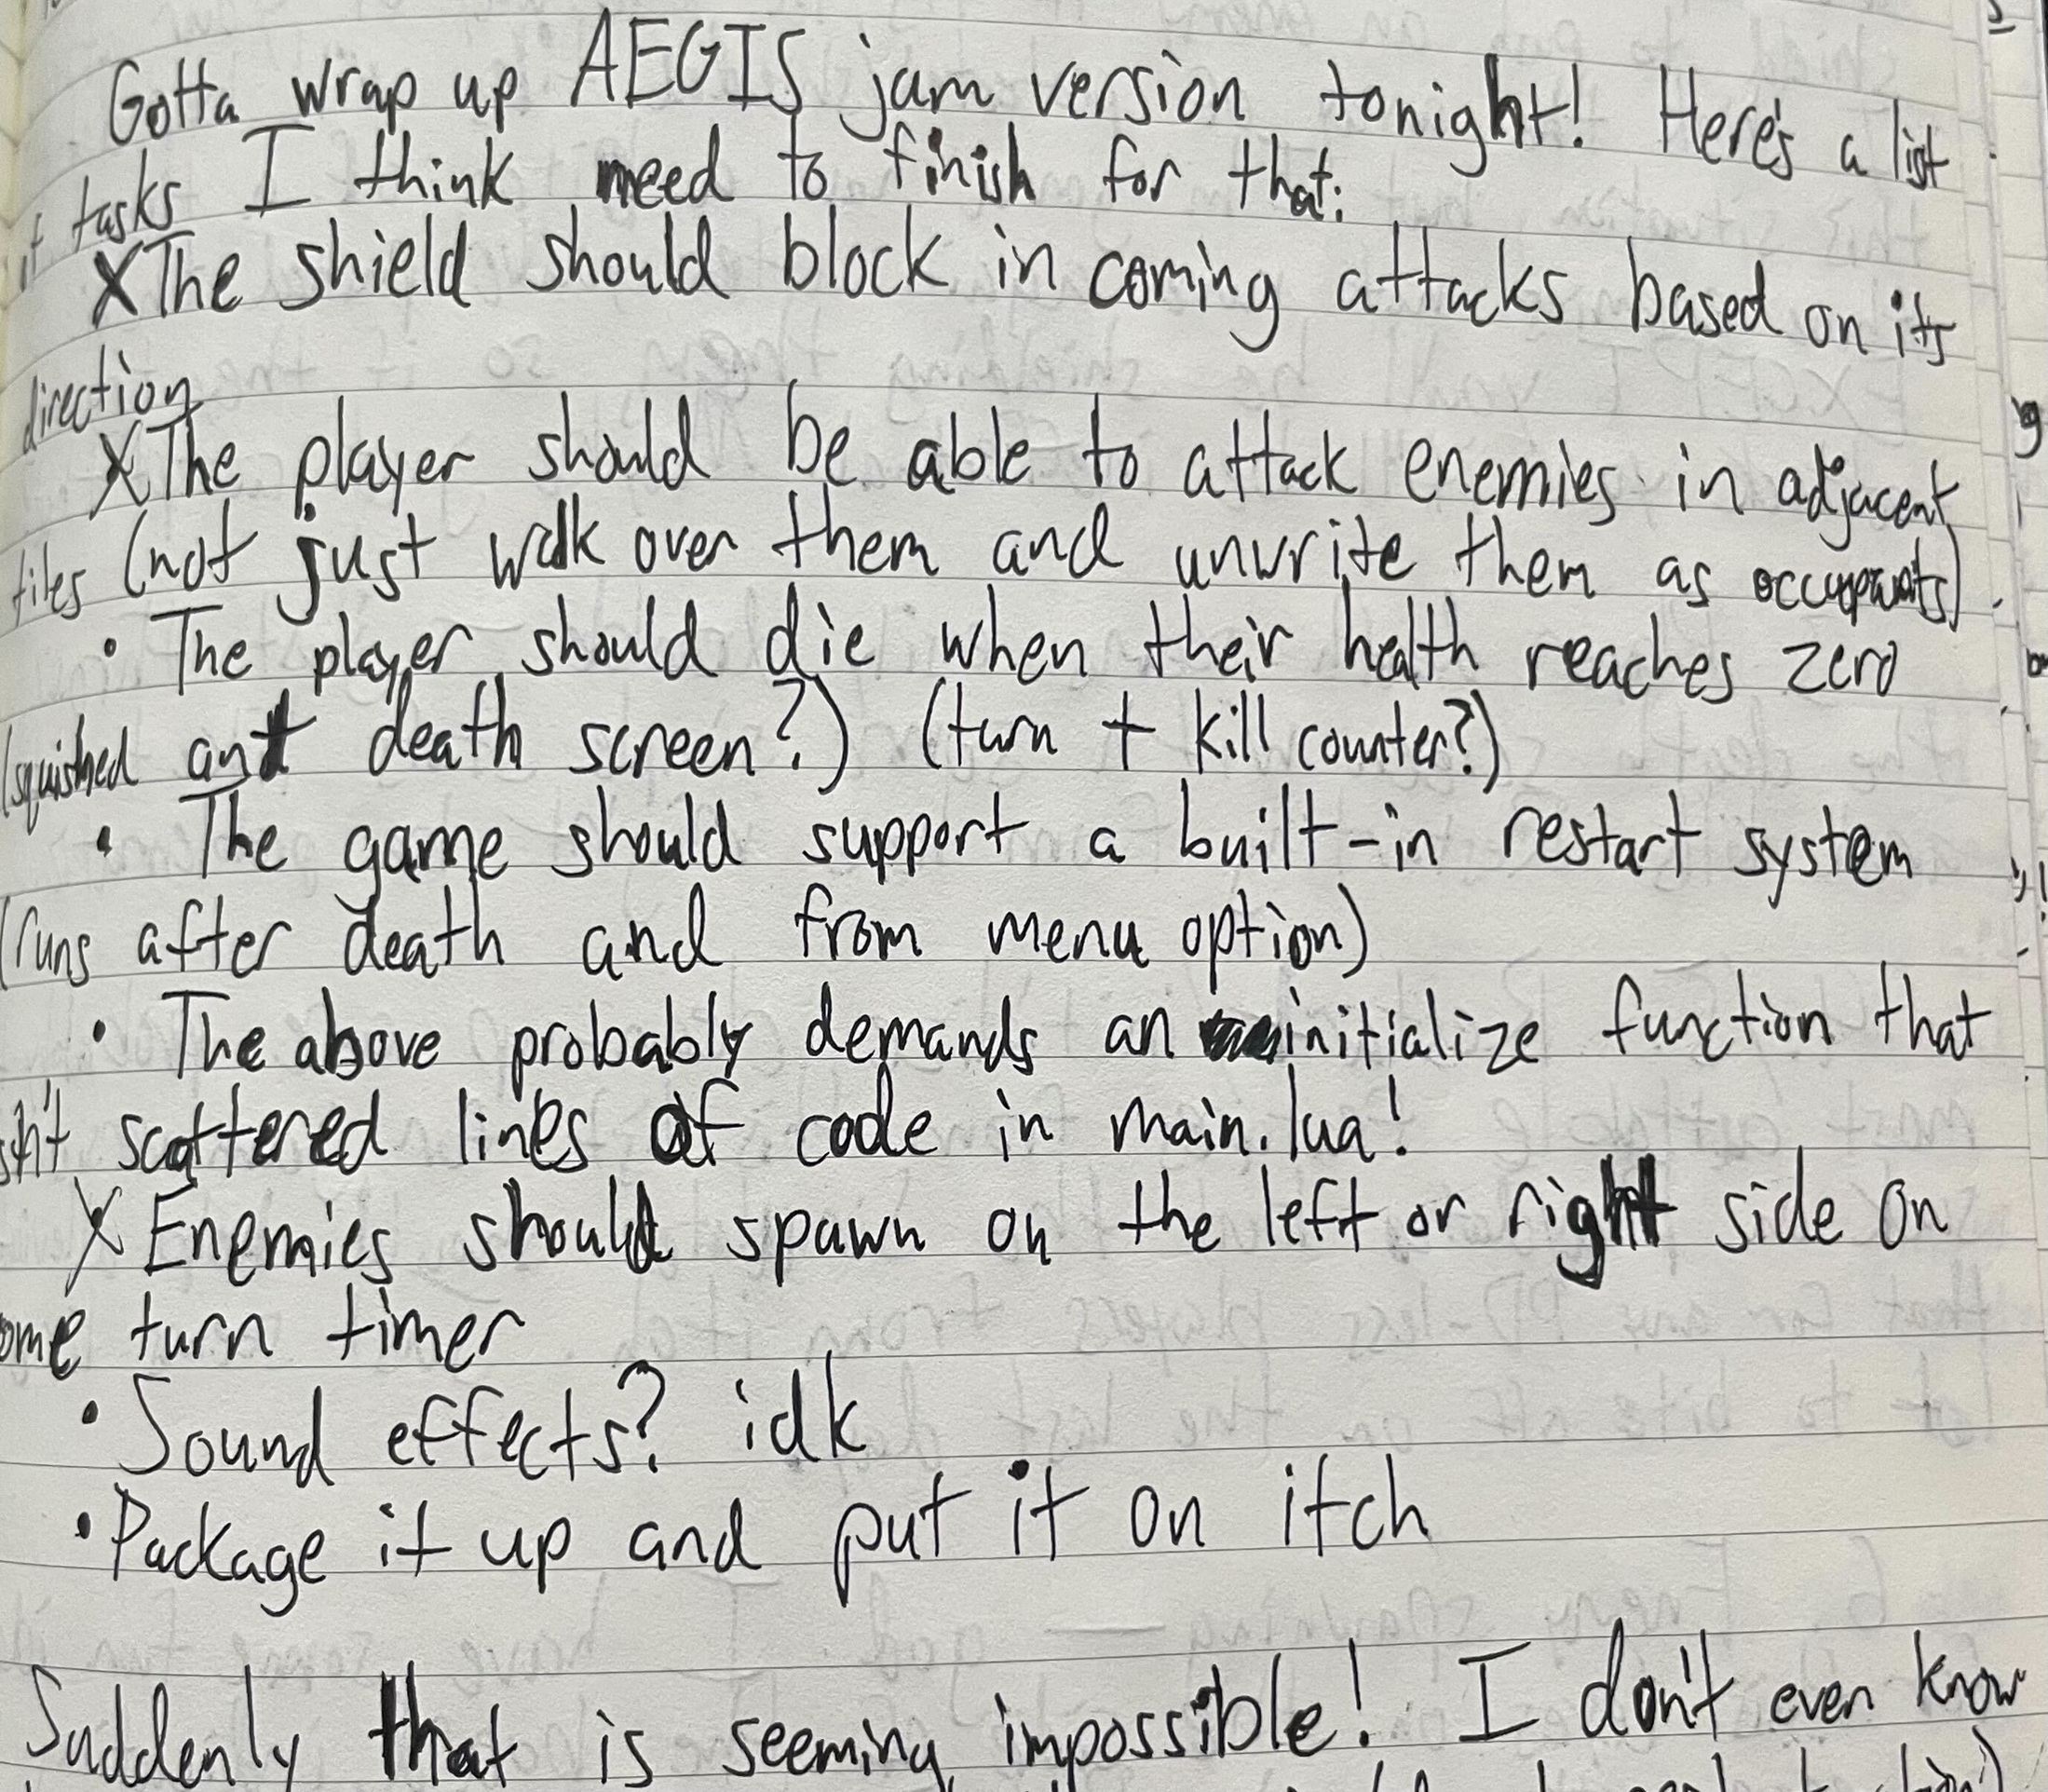 Gotta wrap up AEGIS jam version tonight! Here's a list
of tasks I think need to finish for that:
X The shield should block in coming attacks based on its
direction
X The player should be able to attack enemies in adjacent
tiles (not just walk over them and unwrite them as occupants).
• The player should die when their health reaches zero
(squished ant death screen?) (turn + kill counter?)
• The game should support a built-in restart system
(runs after death and from menu option)
• The above probably demands an initialize function that
isn't scattered lines of code in main.lua!
X Enemies should spawn on the left or right side on
some turn timer
• Sound effects? idk
• Package it up and put it on itch
Suddenly that is seeming impossible! I don't even know